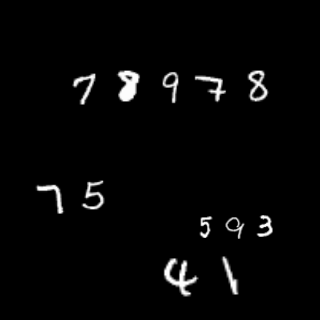 78978
75
593
41